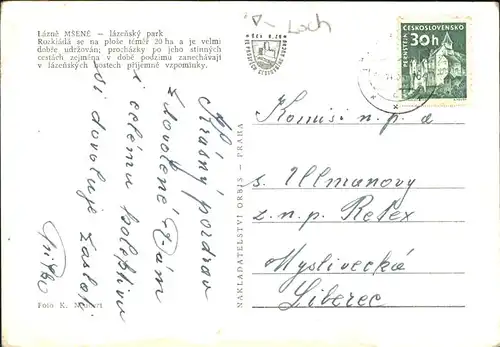 Lázně MŠENÉ — lázeňský park
Rozkládá se na ploše téměř 20 ha a je velmi
dobře udržován; procházky po jeho stinných
cestách zejména v době podzimu zanechávají
v lázeňských hostech příjemné vzpomínky.
Loch
ČESKOSLOVENSKO
30h
PERNŠTEJN
Krásný pozdrav
z dovolené Vám
i celému kolektivu
si dovoluje zaslati
NAKLADATELSTVÍ ORBIS - PRAHA
Komisi n.p. a
s. Ullmanovy
z.n.p. Retex
Myslivecká
Liberec
Foto K.